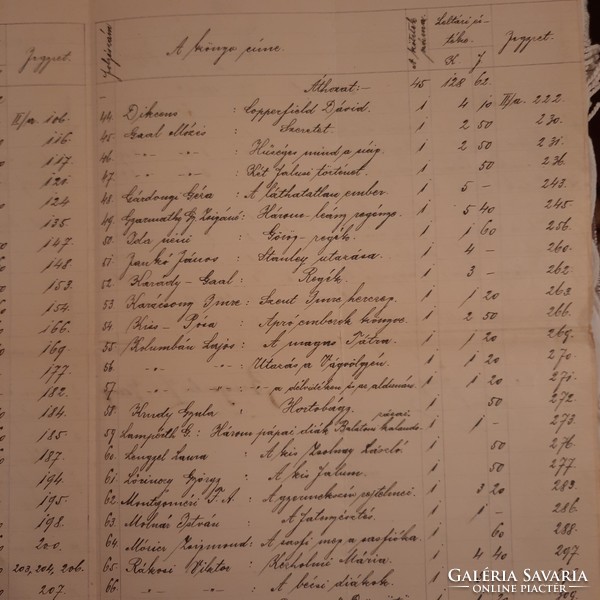 Jegyzet. Folyószám A könyv címe. A kötetek száma. Leltári értéke. K f Jegyzet.
Áthozat:- 45 128 62.
III/a. 106. 44. Dikens : Copperfield Dávid. 1 4 10 III/a. 222.
116. 45. Gaal Mózes : Szeretet. 1 2 50 230.
117. 46. " " : Hűséges mind a sirig. 1 2 50 231.
121. 47. " " : Két falusi történet. 1 50 236
124 48. Gárdonyi Géza : A láthatatlan ember. 1 5 - 243.
135. 49. Gyarmathy Zs. : Három leány regénye. 1 5 40 245.
147. 50. Ida néni : Görög regék. 1 1 60 256.
148. 51. Jankó János : Stanley utazása. 1 4 - 260.
153. 52. Harady - Gaal : Regék. 1 3 - 262.
154. 53. Karácsony Imre : Szent Imre herceg. 1 1 20 263.
166. 54. Kiss - Pósa : Apró emberek könyve. 1 2 50 266.
169. 55. Kolumbán Lajos : A magas Tátra. 1 1 20 269.
177. 56 " " : Utazás a Vágvölgyén. 1 1 20 270.
182. 57 " " : " a délvidéken és az aldunán. 1 1 20 271.
184. 58. Krudy Gyula : Hortobágy. 1 50 272.
185. 59. Lampérth G. : Három pápai diák Balatoni kalandozásai 1 1 - 273.
187. 60. Lengyel Laura : A kis Zsolnay László. 1 50 276.
194. 61. Lőrinczy György : A kis falum. 1 50 277.
195. 62. Montgomeri F. A. : A gyermekszív rejtelmei. 1 3 20 283.
198. 63. Molnár István : A fatenyésztés. 1 1 - 286.
200. 64. Móricz Zsigmond : 1 60 288.
203, 204, 206. 65. Rákosi Viktor : Korhulmi Mária. 1 4 40 297.
207. 66. : A bécsi diákok. 1
GALÉRIA SAVARIA
ONLINE PIACTÉR